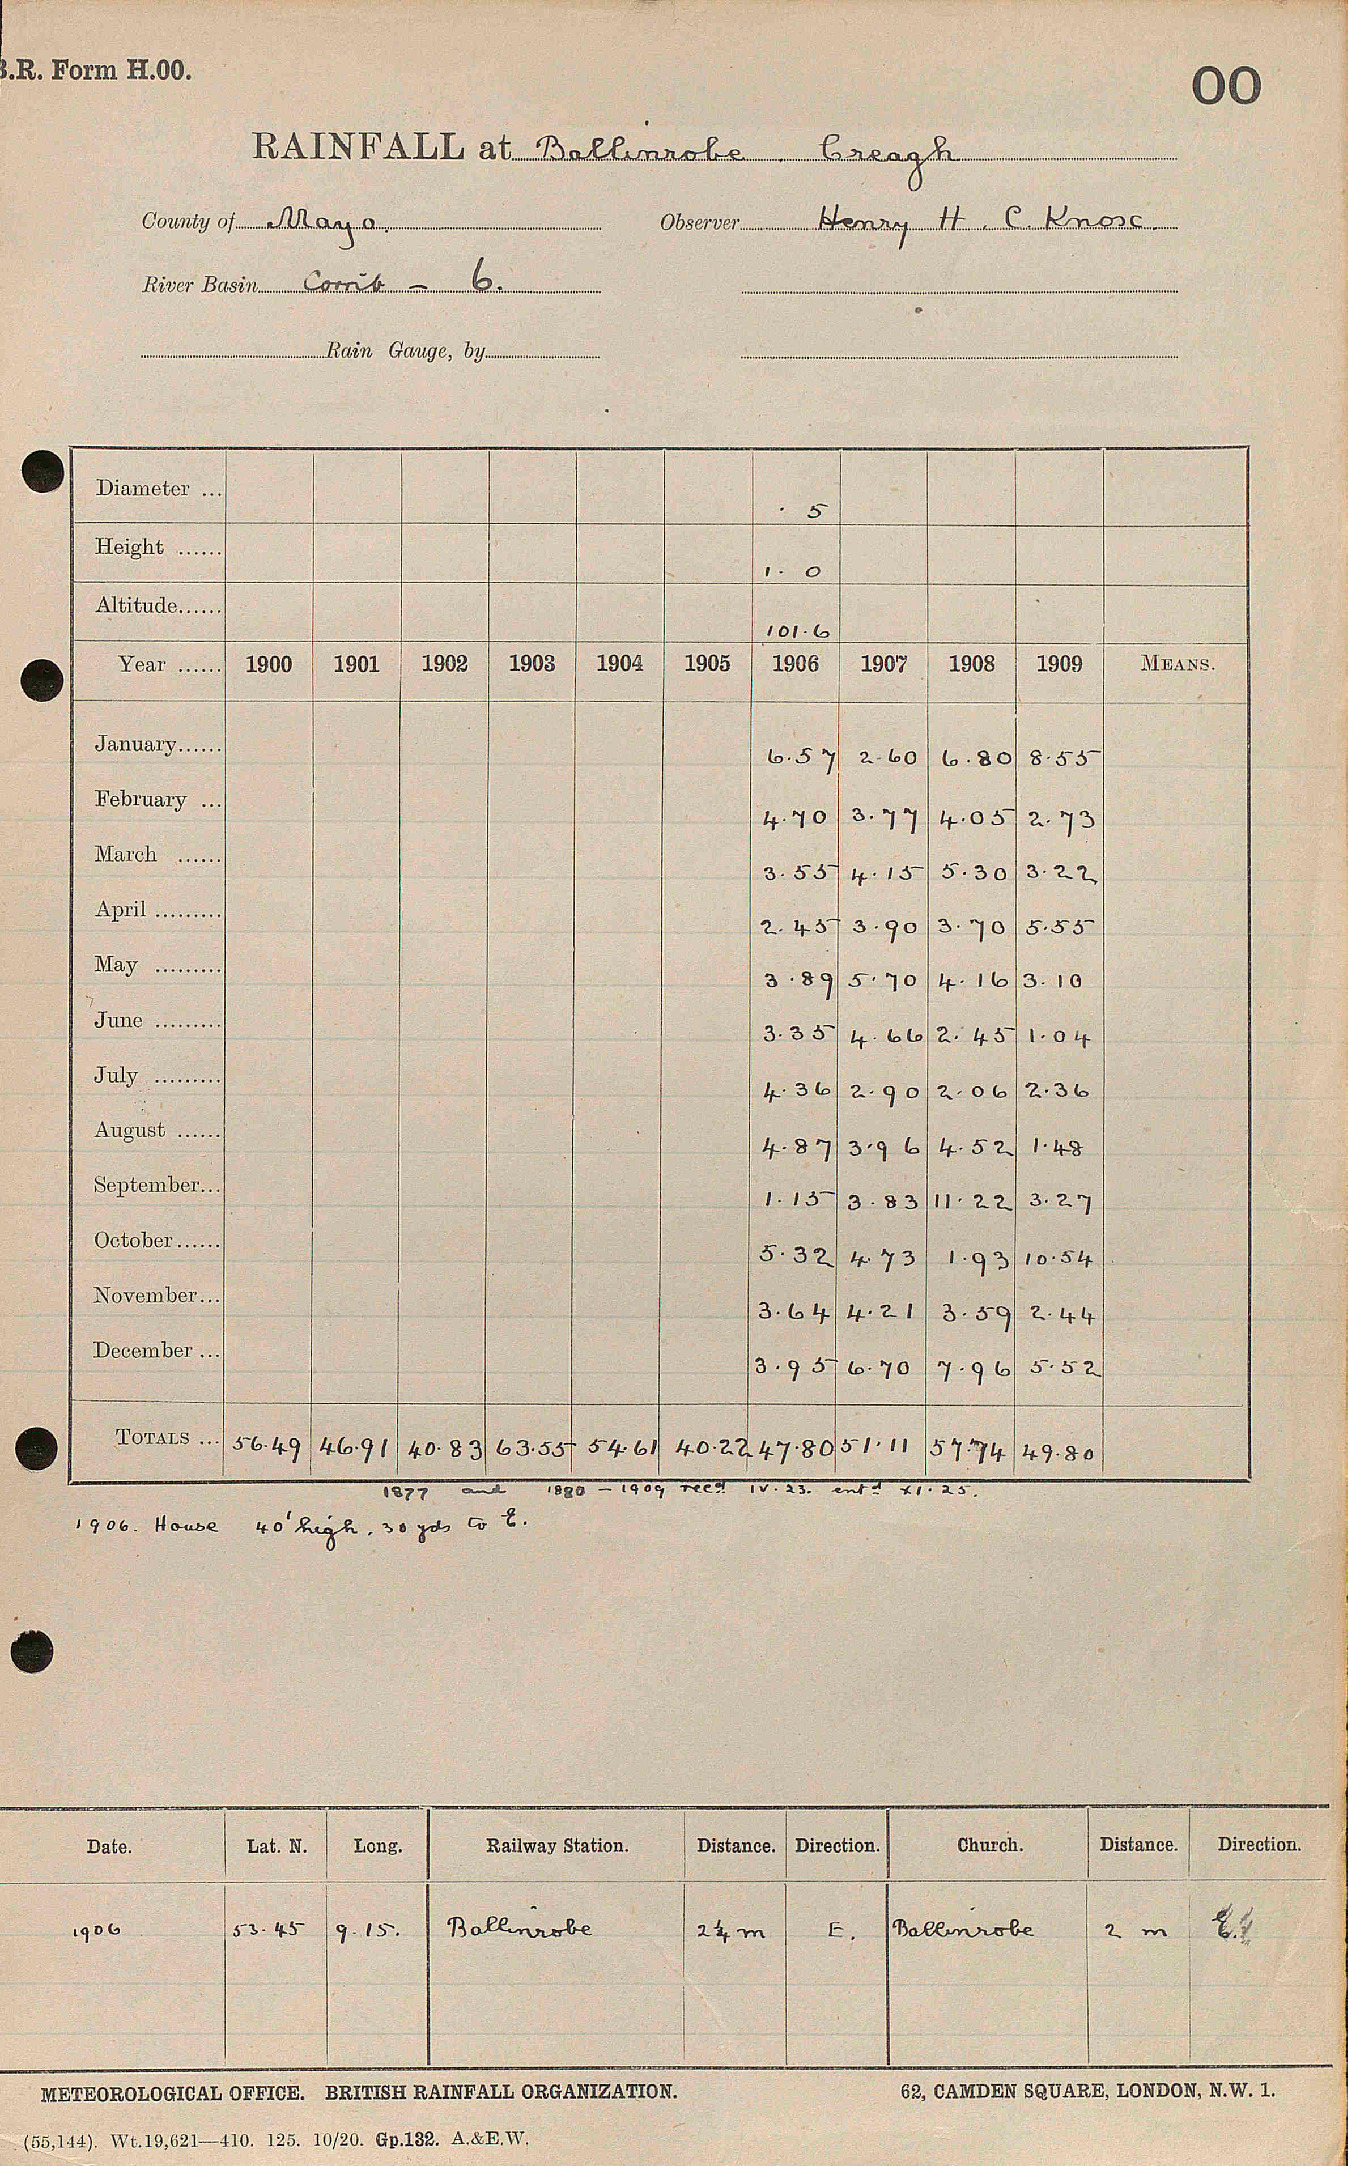 B.R. Form H.00.
00
RAINFALL at Ballinrobe . Creagh
County of Mayo. Observer Henry H. C. Knox.
River Basin Corrib - 6.
Rain Gauge, by
Diameter ... · 5
Height ...... 1· 0
Altitude...... 101·6
Year ...... 1900 1901 1902 1903 1904 1905 1906 1907 1908 1909 MEANS.
January...... 6·57 2·60 6·80 8·55
February ... 4·70 3·77 4·05 2·73
March ...... 3·55 4·15 5·30 3·22
April ......... 2·45 3·90 3·70 5·55
May ......... 3·89 5·70 4·16 3·10
June ......... 3·35 4·66 2·45 1·04
July ......... 4·36 2·90 2·06 2·36
August ...... 4·87 3·96 4·52 1·48
September... 1·15 3·83 11·22 3·27
October...... 5·32 4·73 1·93 10·54
November... 3·64 4·21 3·59 2·44
December ... 3·95 6·70 7·96 5·52
TOTALS ... 56·49 46·91 40·83 63·55 54·61 40·22 47·80 51·11 57·74 49·80
1877 and 1880 - 1909 recd IV·23. entd XI·25.
1906. House 40' high, 30 yds to E.
Date. Lat. N. Long. Railway Station. Distance. Direction. Church. Distance. Direction.
1906 53·45 9·15. Ballinrobe 2¼ m E. Ballinrobe 2 m E.
METEOROLOGICAL OFFICE. BRITISH RAINFALL ORGANIZATION. 62, CAMDEN SQUARE, LONDON, N.W. 1.
(55,144). Wt.19,621—410. 125. 10/20. Gp.132. A.&E.W.